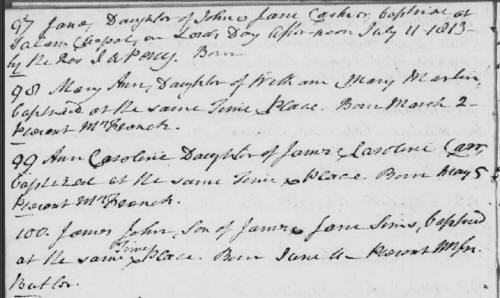 97 Jane, Daughter of John & Jane Casher, baptized at
Salem Chapel, on Lords Day Afternoon July 11 1813
by the Rev J A Percy. Born
98 Mary Ann, Daughter of William Mary Martin,
baptized at the same Time, Place. Born March 2-
Present Mr French.
99 Ann Caroline Daughter of James & Caroline Carr,
baptized at the same Time & Place. Born May 5
Present Mr French.
100. James John, Son of James & Jane Sims, baptized
at the same Time & Place. Born June 4 Present
Butler.